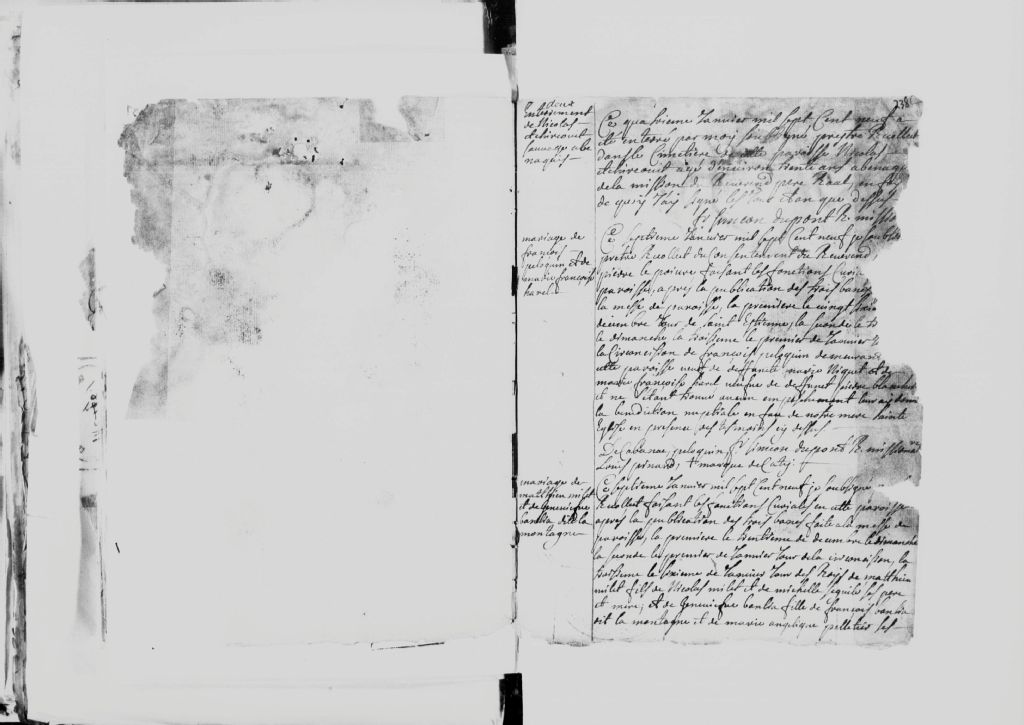 238
deux
Enterrement
de Nicolas
sauvage abe
naquis
Ce quatrieme Janvier mil sept Cent neuf a
ete enterré par moy soubsigné prestre Recollect
dans le Cimetière de cette paroisse Nicolas
agé d'environ trente ans abenaq
de la mission du Reverend pere Raal, en foy
de quoy j'ay signé les jour et an que dessus
fr Simeon dupont R. missio
mariage de
françois
peloquin et de
marie françoise
harel
Ce septieme Janvier mil sept Cent neuf je soubs
prêtre Recollect du Consentement du Reverend
pierre le poivre faisant les fonctions Curia
paroisse, après la publication des trois bans
la messe de paroisse, la premiere le vingt
decembre jour de saint Estienne, la seconde le
le dimanche la troisieme le premier de Janvier
la Circoncision de françois peloquin demeurant
cette paroisse veuf de deffuncte marie Niquet et de
marie françoise harel veufve de deffunct pierre
et ne s'étant trouvé aucun empeschement leur ay donné
la benediction nuptiale en face de notre mere Sainte
Eglise en presence des tesmoins cy dessus
De Cabanac, peloquin, fr Simeon dupont R. missionaire
Louis pinard, + marque de Caty
mariage de
matthieu milet
et de Genevieve
banlia dit la
montagne
Ce septieme Janvier mil sept Cent neuf je soubsigné
Recollect faisant les fonctions Curiales en cette paroisse
après la publication des trois bans faite a la messe de
paroisse, la premiere le trentieme de decembre le dimanche
la seconde le premier de Janvier jour de la circoncision, la
troisieme le sixieme de Janvier jour des Rois de matthieu
milet fils de Nicolas milet et de michelle ses pere
et mere, et de Genevieve banlia fille de françois banlia
dit la montagne et de marie angelique pelletier ses